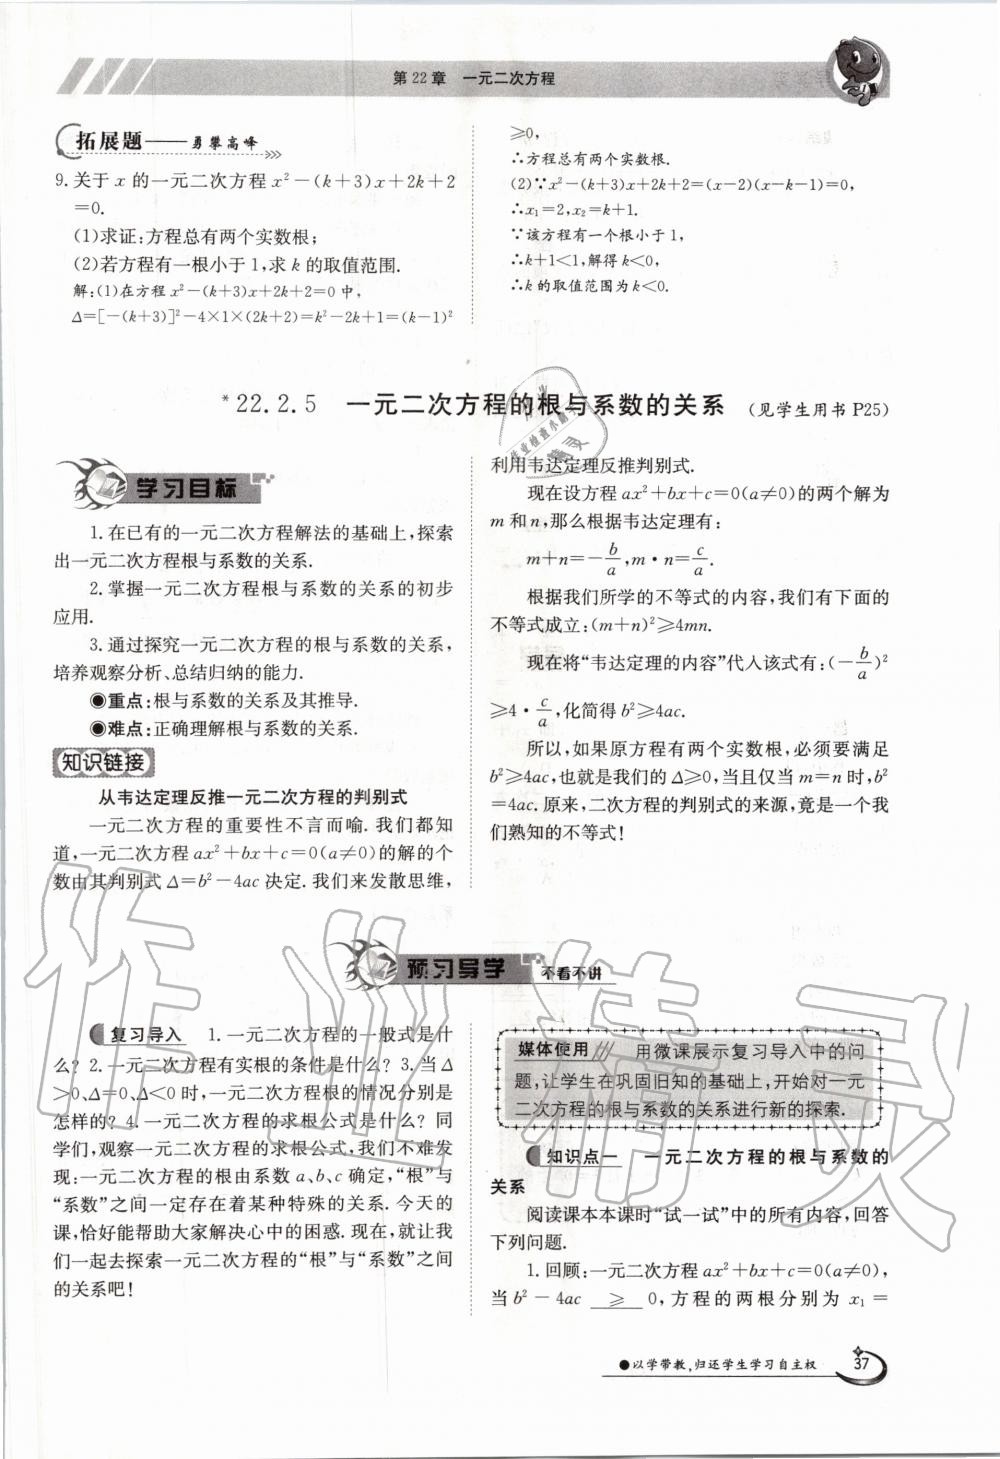 第22章 一元二次方程
拓展题——勇攀高峰
9.关于x的一元二次方程x²-(k+3)x+2k+2
=0.
(1)求证:方程总有两个实数根;
(2)若方程有一根小于1,求k的取值范围.
解:(1)在方程x²-(k+3)x+2k+2=0中,
Δ=[-(k+3)]²-4×1×(2k+2)=k²-2k+1=(k-1)²
≥0,
∴方程总有两个实数根.
(2)∵x²-(k+3)x+2k+2=(x-2)(x-k-1)=0,
∴x₁=2,x₂=k+1.
∵该方程有一个根小于1,
∴k+1<1,解得k<0,
∴k的取值范围为k<0.
*22.2.5 一元二次方程的根与系数的关系 (见学生用书P25)
学习目标
1.在已有的一元二次方程解法的基础上,探索
出一元二次方程根与系数的关系.
2.掌握一元二次方程根与系数的关系的初步
应用.
3.通过探究一元二次方程的根与系数的关系,
培养观察分析、总结归纳的能力.
◉重点:根与系数的关系及其推导.
◉难点:正确理解根与系数的关系.
知识链接
从韦达定理反推一元二次方程的判别式
一元二次方程的重要性不言而喻.我们都知
道,一元二次方程ax²+bx+c=0(a≠0)的解的个
数由其判别式Δ=b²-4ac决定.我们来发散思维,
利用韦达定理反推判别式.
现在设方程ax²+bx+c=0(a≠0)的两个解为
m和n,那么根据韦达定理有:
m+n=-b/a,m·n=c/a.
根据我们所学的不等式的内容,我们有下面的
不等式成立:(m+n)²≥4mn.
现在将“韦达定理的内容”代人该式有:(-b/a)²
≥4·c/a,化简得b²≥4ac.
所以,如果原方程有两个实数根,必须要满足
b²≥4ac,也就是我们的Δ≥0,当且仅当m=n时,b²
=4ac.原来,二次方程的判别式的来源,竟是一个我
们熟知的不等式!
预习导学 不看不讲
复习导入 1.一元二次方程的一般式是什
么?2.一元二次方程有实根的条件是什么?3.当Δ
>0、Δ=0、Δ<0时,一元二次方程根的情况分别是
怎样的?4.一元二次方程的求根公式是什么?同
学们,观察一元二次方程的求根公式,我们不难发
现:一元二次方程的根由系数a、b、c确定,“根”与
“系数”之间一定存在着某种特殊的关系.今天的
课,恰好能帮助大家解决心中的困惑.现在,就让我
们一起去探索一元二次方程的“根”与“系数”之间
的关系吧!
媒体使用 用微课展示复习导入中的问
题,让学生在巩固旧知的基础上,开始对一元
二次方程的根与系数的关系进行新的探索.
知识点一 一元二次方程的根与系数的
关系
阅读课本本课时“试一试”中的所有内容,回答
下列问题.
1.回顾:一元二次方程ax²+bx+c=0(a≠0),
当b²-4ac ≥ 0,方程的两根分别为x₁=
●以学带教,归还学生学习自主权
37
作业精灵